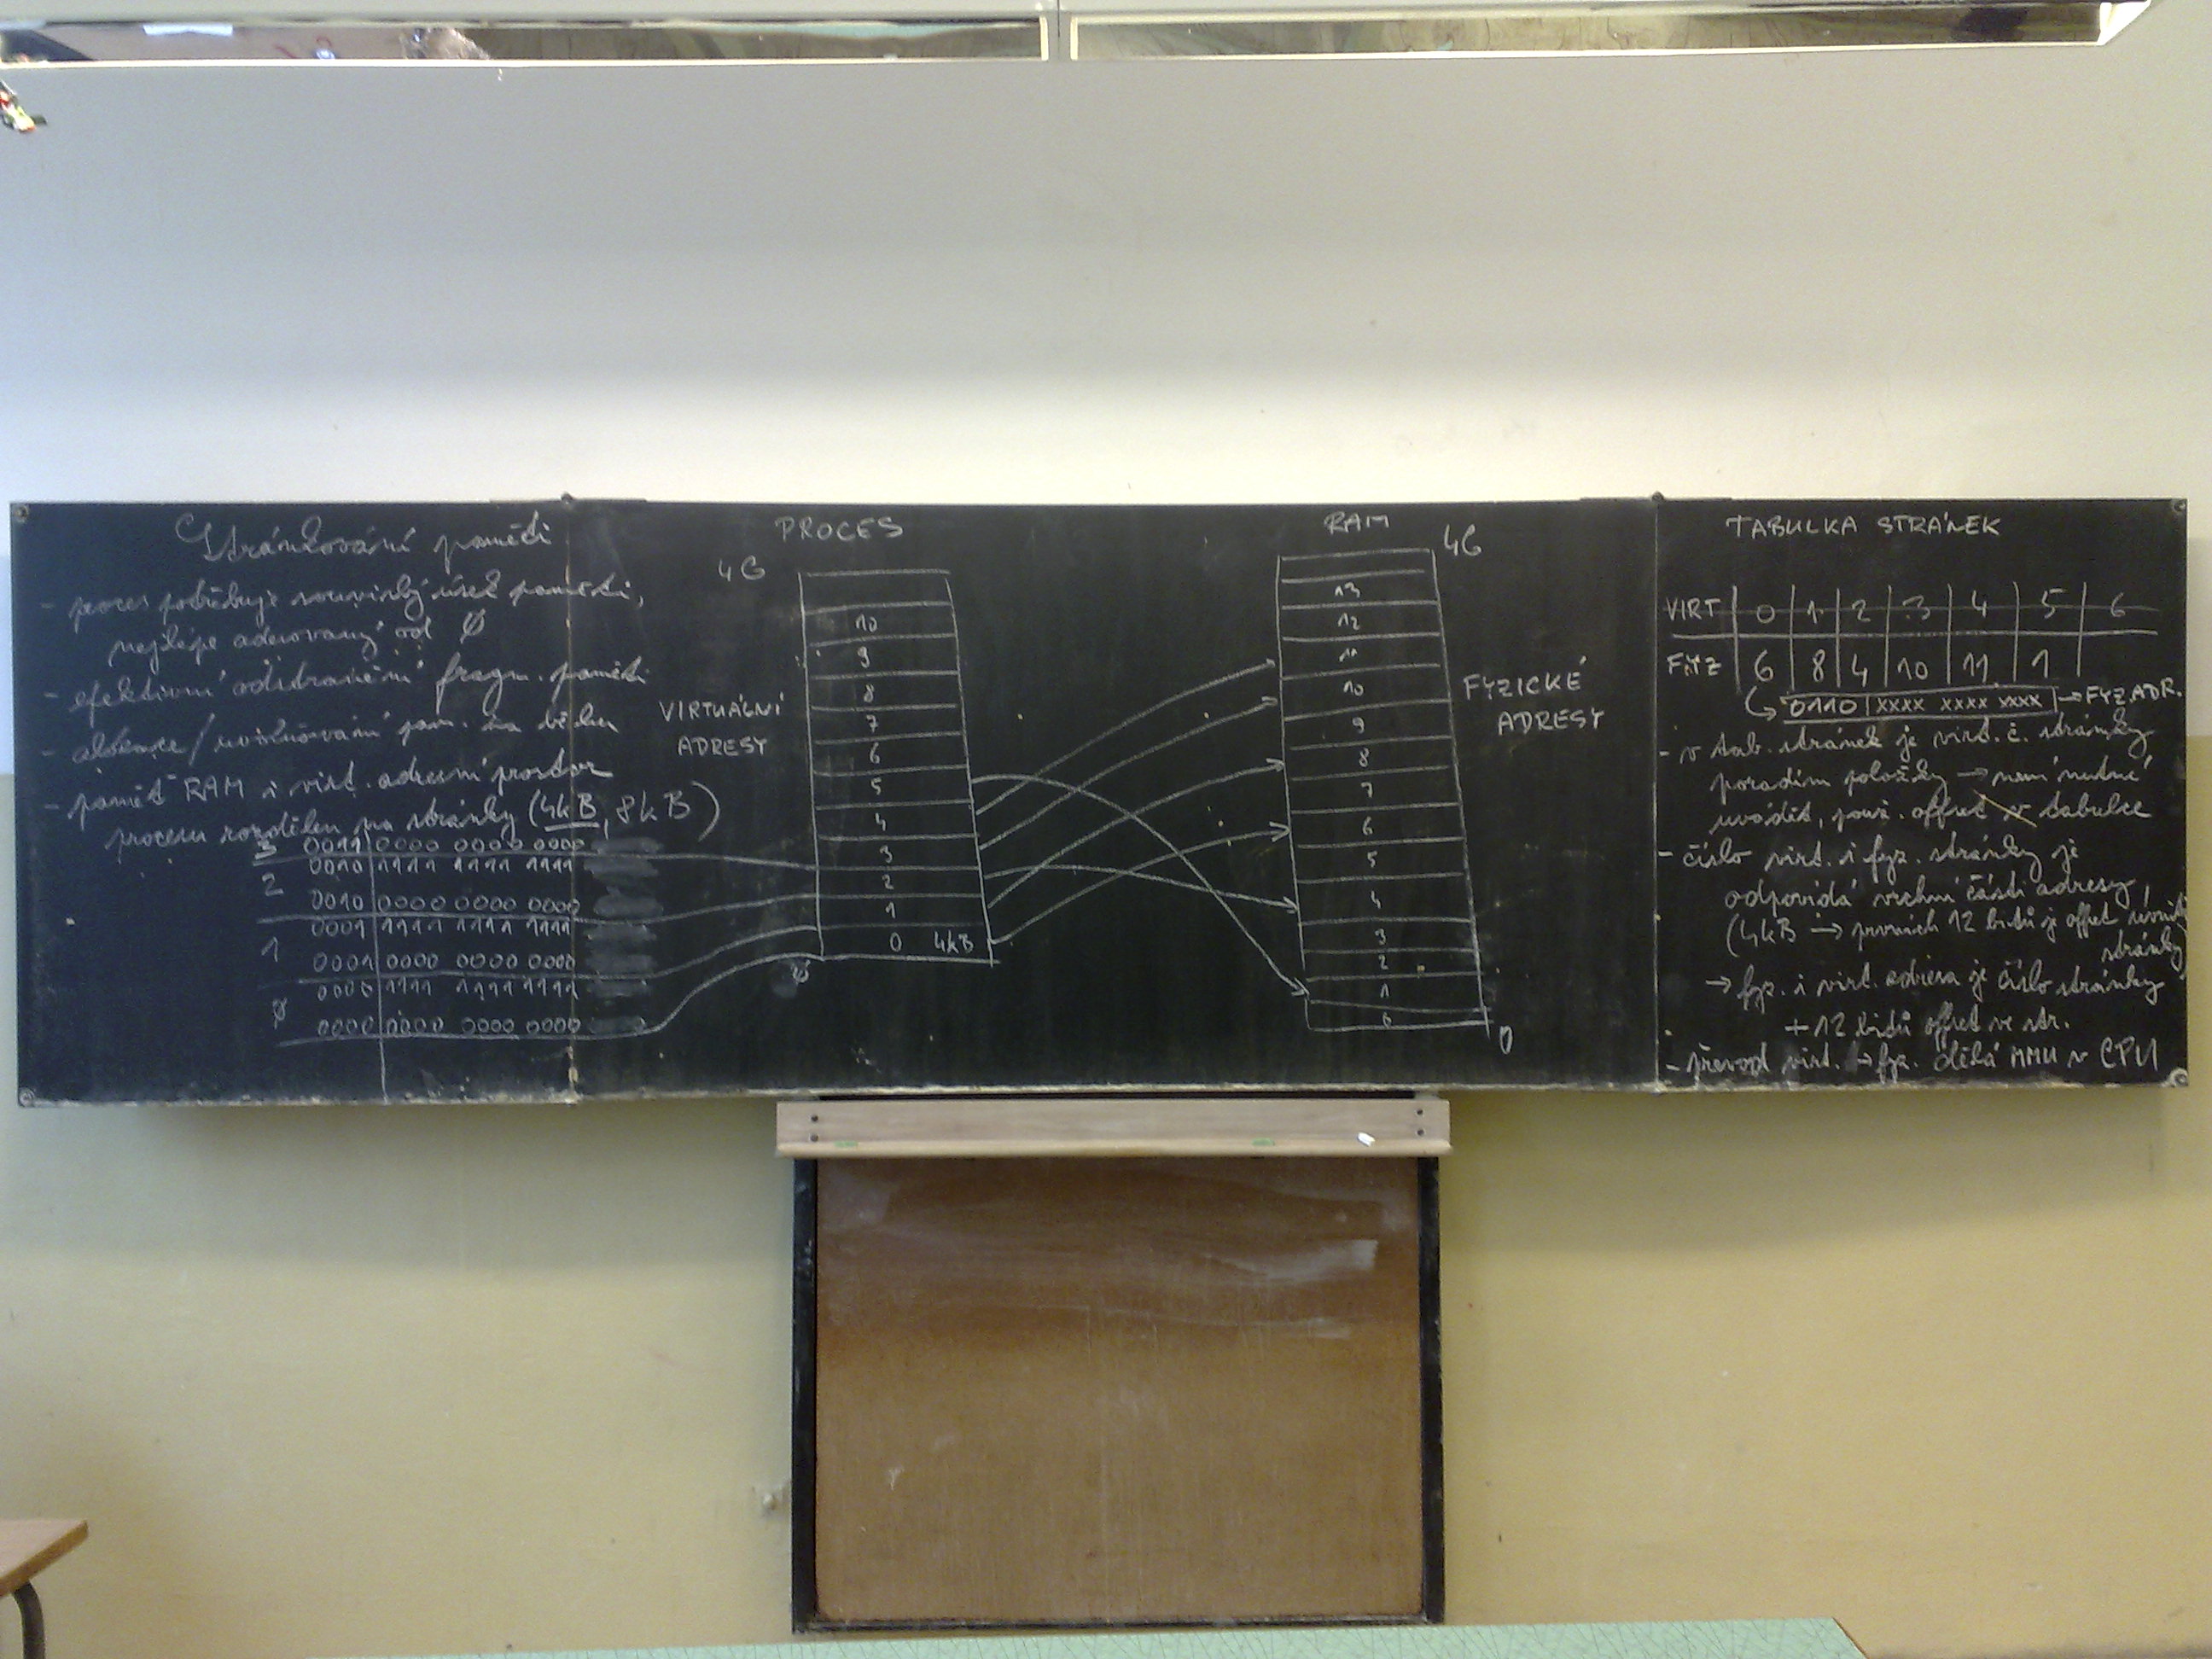 Stránkování paměti
- proces potřebuje souvislý úsek paměti,
nejlépe adresovaný od Ø
- efektivní odstranění fragm. paměti
- alokace / uvolňování pam. za běhu
- paměť RAM i virt. adresní prostor
procesu rozdělen na stránky (4kB, 8kB)
3 0011 0000 0000 0000
0010 1111 1111 1111
2
0010 0000 0000 0000
0001 1111 1111 1111
1
0001 0000 0000 0000
0000 1111 1111 1111
Ø
0000 0000 0000 0000
PROCES
4G
VIRTUÁLNÍ
ADRESY
10
9
8
7
6
5
4
3
2
1
0 4kB
Ø
RAM
4G
13
12
11
10
9
8
7
6
5
4
3
2
1
0
0
FYZICKÉ
ADRESY
TABULKA STRÁNEK
VIRT 0 1 2 3 4 5 6
FYZ 6 8 4 10 11 1
0110 xxxx xxxx xxxx → FYZ. ADR.
- v tab. stránek je virt. č. stránky
pořadím položky → není nutné
uvádět, použ. offset v tabulce
- číslo virt. i fyz. stránky je
odpovídá vrchní části adresy,
(4kB → prvních 12 bitů je offset uvnitř
stránky)
→ fyz. i virt. adresa je číslo stránky
+ 12 bitů offset ve str.
- převod virt. → fyz. dělá MMU v CPU